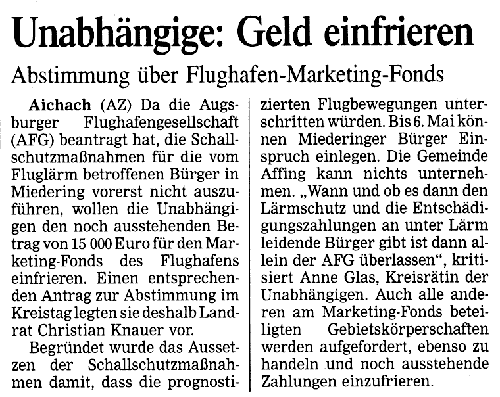 Unabhängige: Geld einfrieren
Abstimmung über Flughafen-Marketing-Fonds
Aichach (AZ) Da die Augs-
burger Flughafengesellschaft
(AFG) beantragt hat, die Schall-
schutzmaßnahmen für die vom
Fluglärm betroffenen Bürger in
Miedering vorerst nicht auszu-
führen, wollen die Unabhängi-
gen den noch ausstehenden Be-
trag von 15 000 Euro für den Mar-
keting-Fonds des Flughafens
einfrieren. Einen entsprechen-
den Antrag zur Abstimmung im
Kreistag legten sie deshalb Land-
rat Christian Knauer vor.
Begründet wurde das Ausset-
zen der Schallschutzmaßnah-
men damit, dass die prognosti-
zierten Flugbewegungen unter-
schritten würden. Bis 6. Mai kön-
nen Miederinger Bürger Ein-
spruch einlegen. Die Gemeinde
Affing kann nichts unterneh-
men. „Wann und ob es dann den
Lärmschutz und die Entschädi-
gungszahlungen an unter Lärm
leidende Bürger gibt ist dann al-
lein der AFG überlassen", kriti-
siert Anne Glas, Kreisrätin der
Unabhängigen. Auch alle ande-
ren am Marketing-Fonds betei-
ligten Gebietskörperschaften
werden aufgefordert, ebenso zu
handeln und noch ausstehende
Zahlungen einzufrieren.